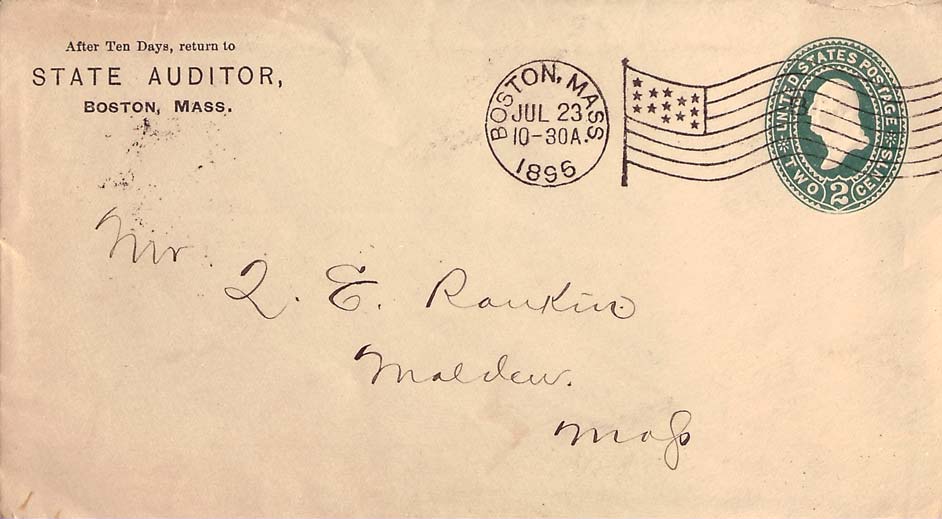 After Ten Days, return to
STATE AUDITOR,
BOSTON, MASS.
BOSTON, MASS.
JUL 23
10-30A.
1896
UNITED STATES POSTAGE
TWO 2 CENTS
Mr.
E. Rankin
Malden.
Mass